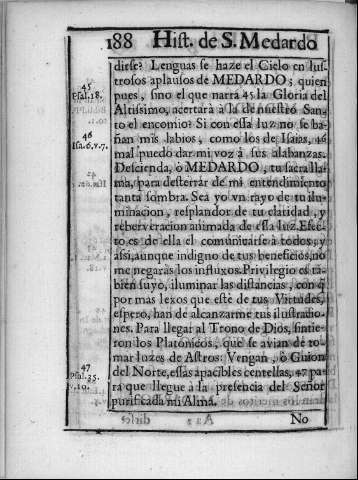 188 Hist. de S. Medardo
dirse? Lenguas se haze el Cielo en lus-
trosos aplausos de MEDARDO; quien
45
Psal. 18.
pues, sino el que narra 45 la Gloria del
Altissimo, acertarà à la de nuestro San-
to el encomio? Si con essa luz no se ba-
46
Isa. 6. v. 7.
ñan mis labios, como los de Isaias, 46
mal puedo dar mi voz à sus alabanzas.
Descienda, ò MEDARDO, tu sacra lla-
ma, para desterrar de mi entendimiento
tanta sombra. Sea yo vn rayo de tu ilu-
minacion, resplandor de tu claridad, y
reberveracion animada de essa luz. Efec-
to es de ella el comunicarse à todos, y
assi, aunque indigno de tus beneficios, no
me negaràs los influxos. Privilegio es tã-
bien suyo, iluminar las distancias, con q̃
por mas lexos que estè de tus Virtudes,
espero, han de alcanzarme tus ilustracio-
nes. Para llegar al Trono de Dios, sintie-
ron los Platonicos, que se avian de to-
mar luzes de Astros: Vengan, ò Guion
47
Psal. 35.
v. 10.
del Norte, essas apacibles centellas, 47 pa-
ra que llegue à la presencia del Señor
purificada mi Alma.
No